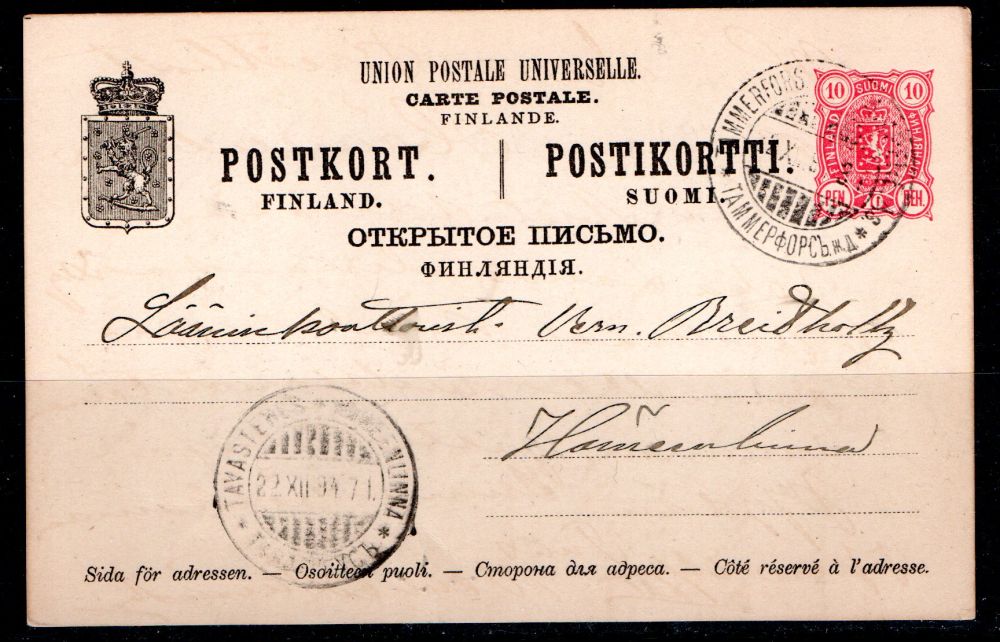 UNION POSTALE UNIVERSELLE.
CARTE POSTALE.
FINLANDE.
POSTKORT. POSTIKORTTI.
FINLAND. SUOMI.
ОТКРЫТОЕ ПИСЬМО.
ФИНЛЯНДІЯ.
10 SUOMI 10
FINLAND ФИНЛЯНДІЯ
PEN. ПЕН.
TAMMERFORS
ТАММЕРФОРСЪ.Ж.Д.
Vern. Breidholtz
Hämeenlinna
TAVASTEHUS
22.XII.94 7 I.
Sida för adressen. — Osoitteen puoli. — Сторона для адреса. — Côté réservé à l'adresse.